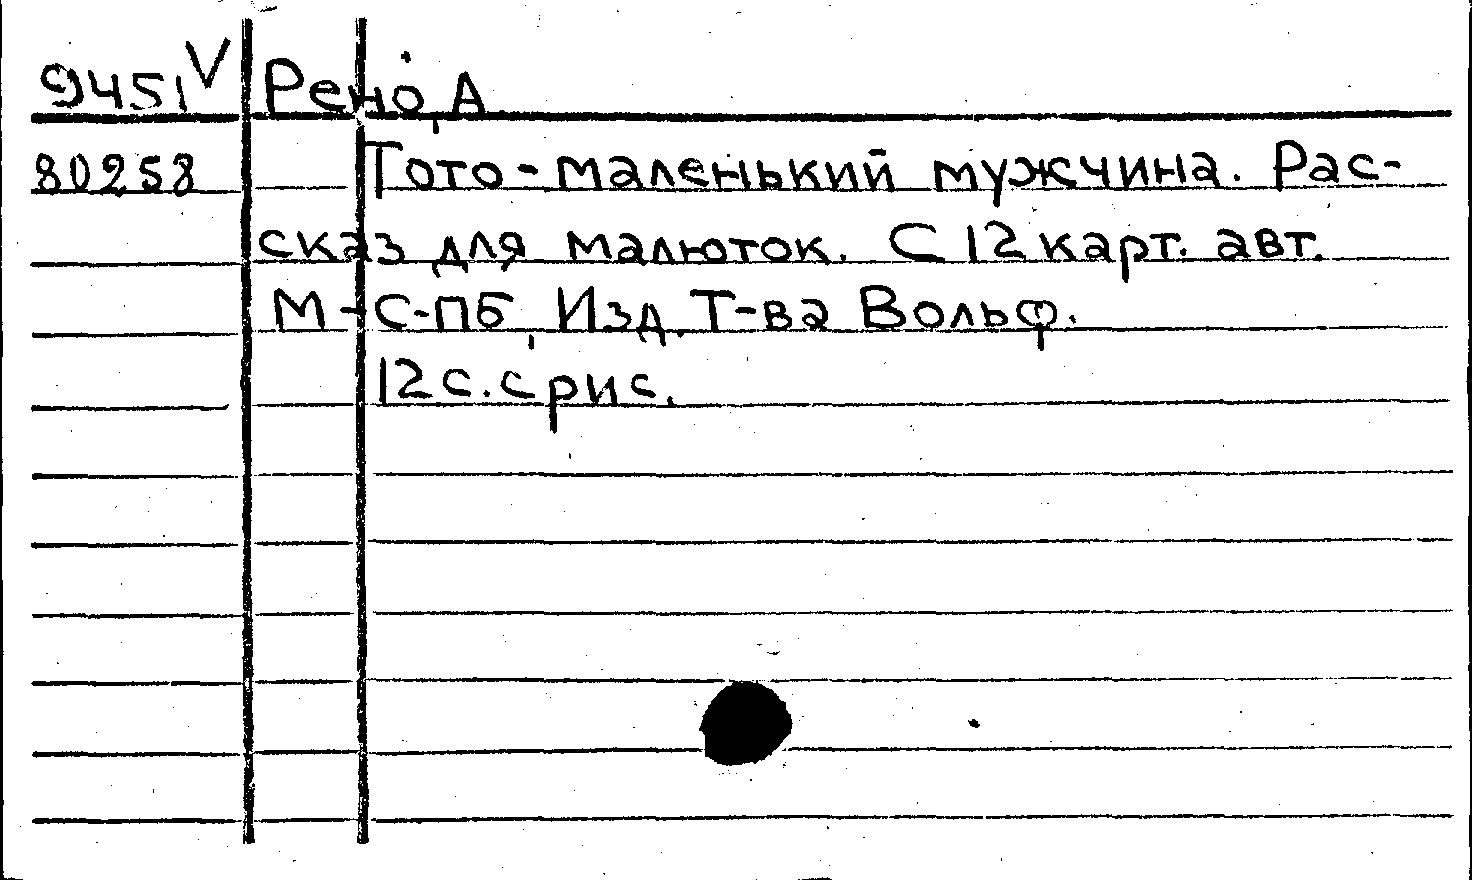 9451 V Рено, А.
80258 Тото-маленький мужчина. Рас-
сказ для малюток. С 12 карт. авт.
М-С-ПБ, Изд. Т-ва Вольф.
12 с. с рис.